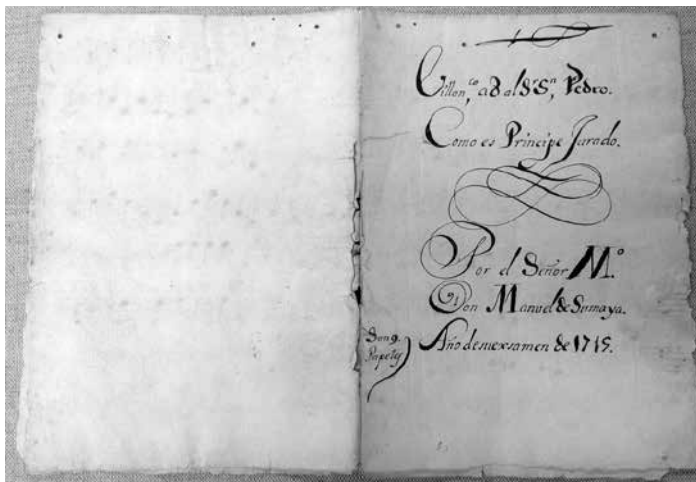 Villan.co a 8 al S.r S.n Pedro.
Como es Principe Jurado.
Por el Señor M.o
Don Manuel de Sumaya.
Son 9.
Papeles
Año de mexsamen de 1715.